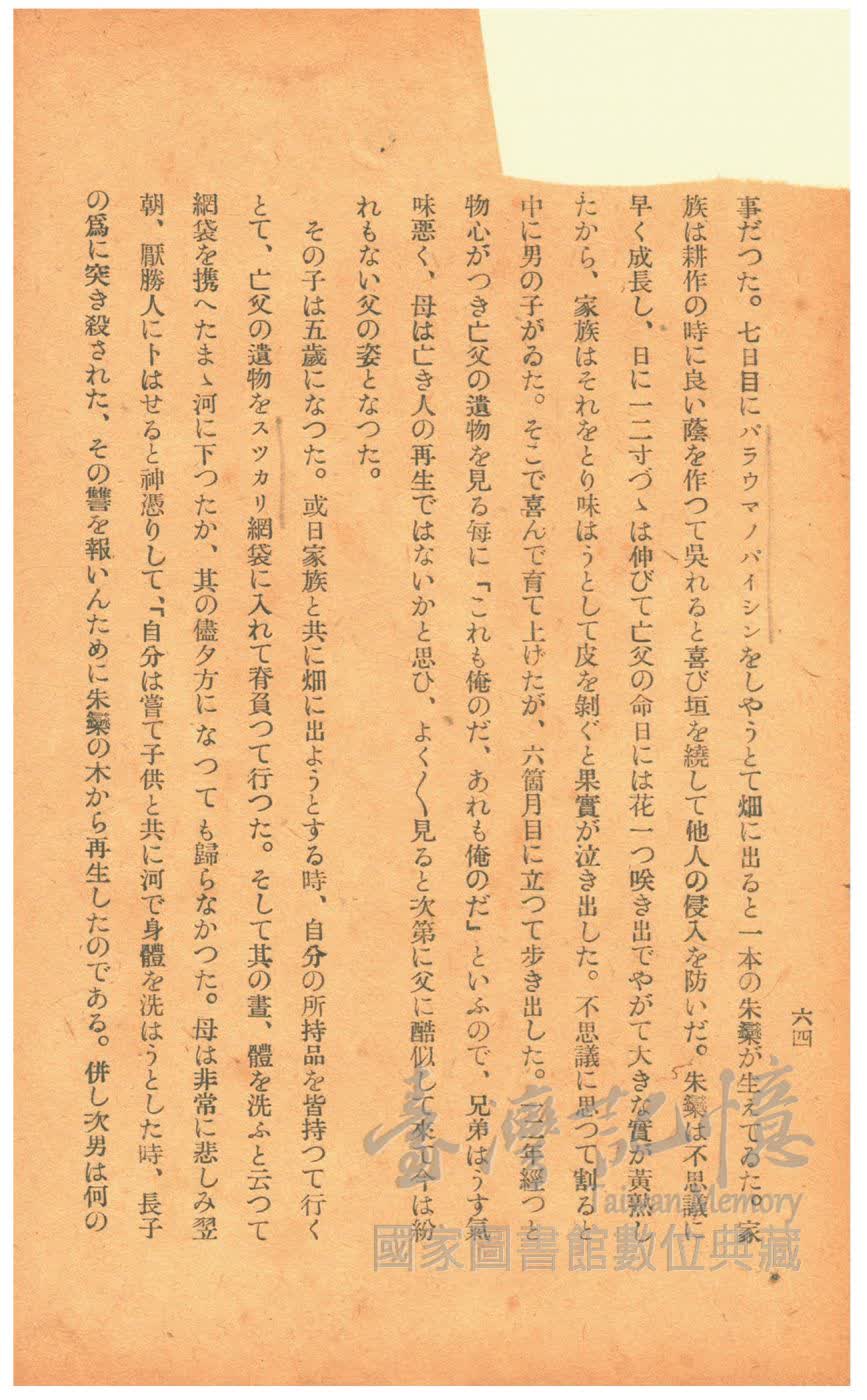 六四
事だつた。七日目にパラウマノパイシンをしやうとて畑に出ると一本の朱欒が生えてゐた。家
族は耕作の時に良い蔭を作つて吳れると喜び垣を繞して他人の侵入を防いだ。朱欒は不思議に
早く成長し、日に一二寸づゝは伸びて亡父の命日には花一つ咲き出でやがて大きな實が黃熟し
たから、家族はそれをとり味はうとして皮を剝ぐと果實が泣き出した。不思議に思つて割ると
中に男の子がゐた。そこで喜んで育て上げたが、六箇月目に立つて步き出した。一二年經つと
物心がつき亡父の遺物を見る每に「これも俺のだ、あれも俺のだ」といふので、兄弟はうす氣
味悪く、母は亡き人の再生ではないかと思ひ、よく〱見ると次第に父に酷似して來て今は紛
れもない父の姿となつた。
その子は五歲になつた。或日家族と共に畑に出ようとする時、自分の所持品を皆持つて行く
とて、亡父の遺物をスツカリ網袋に入れて脊負つて行つた。そして其の晝、體を洗ふと云つて
網袋を携へたまゝ河に下つたか、其の儘夕方になつても歸らなかつた。母は非常に悲しみ翌
朝、厭勝人にトはせると神憑りして、「自分は嘗て子供と共に河で身體を洗はうとした時、長子
の爲に突き殺された、その讐を報いんために朱欒の木から再生したのである。併し次男は何の
臺灣記憶
Taiwan Memory
國家圖書館數位典藏